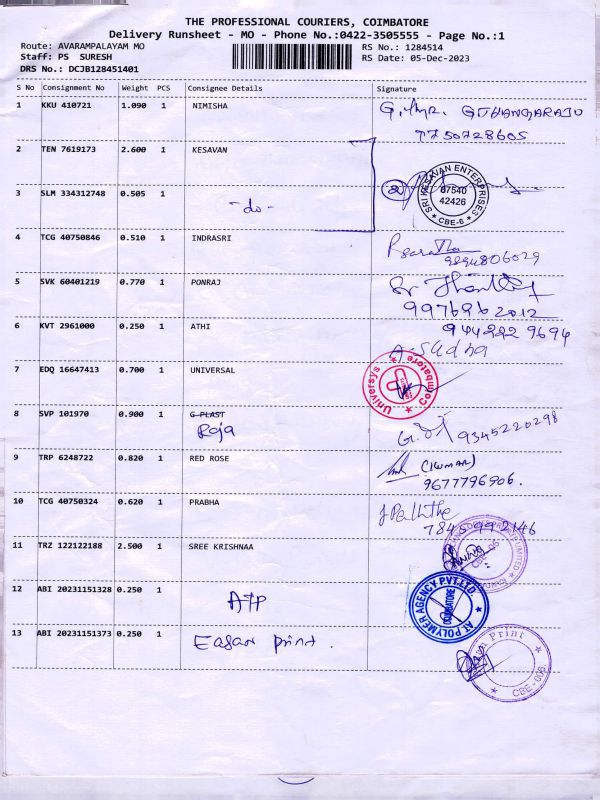 THE PROFESSIONAL COURIERS, COIMBATORE
Delivery Runsheet - MO - Phone No.:0422-3505555 - Page No.:1
Route: AVARAMPALAYAM MO
RS No.: 1284514
Staff: PS SURESH
RS Date: 05-Dec-2023
DRS No.: DCJB128451401
S No Consignment No Weight PCS Consignee Details Signature
1 KKU 410721 1.090 1 NIMISHA G. GTHANGARAJU
7750728605
2 TEN 7619173 2.600 1 KESAVAN
SRI KESAVAN ENTERPRISES
97540
42426
CBE-6
3 SLM 334312748 0.505 1 -do-
4 TCG 40750846 0.510 1 INDRASRI
9894806029
5 SVK 60401219 0.770 1 PONRAJ
9976962012
6 KVT 2961000 0.250 1 ATHI 944222 9694
A-Sudha
7 EDQ 16647413 0.700 1 UNIVERSAL
Universys Coimbatore
8 SVP 101970 0.900 1 G PLAST
Raja
9345220298
9 TRP 6248722 0.820 1 RED ROSE (KUMAR)
9677796906.
10 TCG 40750324 0.620 1 PRABHA
7845992146
11 TRZ 122122188 2.500 1 SREE KRISHNAA
CBE-06
12 ABI 20231151328 0.250 1 ATP
AT POLYMER AGENCY PVT.LTD
COIMBATORE
13 ABI 20231151373 0.250 1 Easan print.
Print
CBE-006